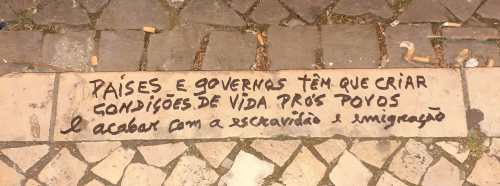 PAÍSES E GOVERNOS TÊM QUE CRIAR
CONDIÇÕES DE VIDA PRÓS POVOS
E acabar com a escravidão e emigração